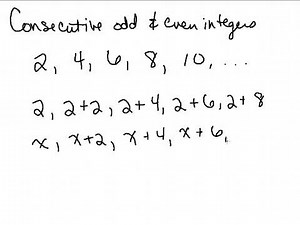 Consecutive odd & even integers
2, 4, 6, 8, 10, ...
2, 2+2, 2+4, 2+6, 2+8
x, x+2, x+4, x+6,